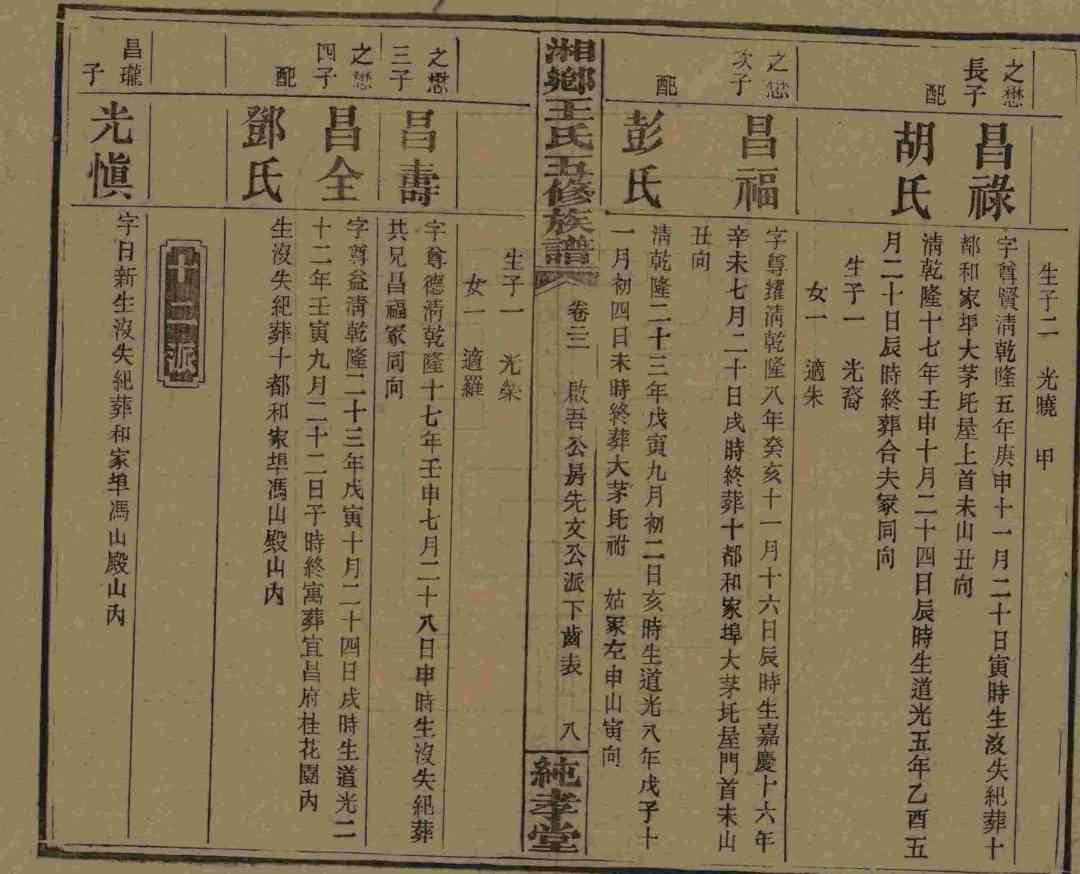 生子二　光曉　甲
之懋長子　昌祿　字尊賢清乾隆五年庚申十一月二十日寅時生沒失紀葬十
都和家埠大茅坵屋上首未山丑向
配　胡氏　清乾隆十七年壬申十月二十四日辰時生道光五年乙酉五
月二十日辰時終葬合夫冢同向
生子一　光裔
女一　適朱
之懋次子　昌福　字尊耀清乾隆八年癸亥十一月十六日辰時生嘉慶十六年
辛未七月二十日戌時終葬十都和家埠大茅坵屋門首未山
丑向
配　彭氏　清乾隆二十三年戊寅九月初二日亥時生道光八年戊子十
一月初四日未時終葬大茅坵祔　姑冢左申山寅向
湘鄉王氏五修族譜　卷三　啟吾公房先文公派下齒表　八　純孝堂
生子一　光榮
女一　適羅
之懋三子　昌壽　字尊德清乾隆十七年壬申七月二十八日申時生沒失紀葬
共兄昌福冢同向
之懋四子　昌全　字尊益清乾隆二十三年戊寅十月二十四日戌時生道光二
十二年壬寅九月二十二日子時終寓葬宜昌府桂花園內
配　鄧氏　生沒失紀葬十都和家埠馮山殿山內
派
昌瓏子　光愼　字日新生沒失紀葬和家埠馮山殿山內